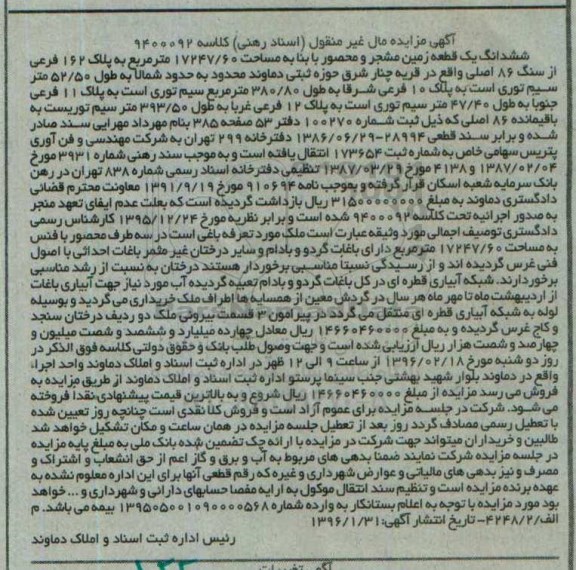 آگهی مزایده مال غیر منقول (اسناد رهنی) کلاسه ۹۴۰۰۰۹۲
ششدانگ یک قطعه زمین مشجر و محصور با بنا به مساحت ۱۷۲۴۷/۶۰ مترمربع به پلاک ۱۶۲ فرعی
از سنگ ۸۶ اصلی واقع در قریه چنار شرق حوزه ثبتی دماوند محدود به حدود شمالا به طول ۵۲/۵۰ متر
سیم توری است به پلاک ۱۰ فرعی شرقا به طول ۳۸۰/۸۰ مترمربع سیم توری است به پلاک ۱۱ فرعی
جنوبا به طول ۴۷/۴۰ متر سیم توری است به پلاک ۱۲ فرعی غربا به طول ۳۹۳/۵۰ متر سیم توریست به
باقیمانده ۸۶ اصلی که ذیل ثبت شماره ۱۰۰۲۷۰ دفتر ۵۳ صفحه ۳۸۵ بنام مهرداد مهرایی سند صادر
شده و برابر سند قطعی ۲۸۹۹۴-۱۳۸۶/۰۶/۲۹ دفترخانه ۲۹۹ تهران به شرکت مهندسی و فن آوری
پتریس سهامی خاص به شماره ثبت ۱۷۳۶۵۴ انتقال یافته است و به موجب سند رهنی شماره ۳۹۳۱ مورخ
۱۳۸۷/۰۲/۰۴ و ۴۱۳۸ مورخ ۱۳۸۷/۰۳/۲۹ تنظیمی دفترخانه اسناد رسمی شماره ۸۳۸ تهران در رهن
بانک سرمایه شعبه اسکان قرار گرفته و بموجب نامه ۹۱۰۶۹۴ مورخ ۱۳۹۱/۹/۱۹ معاونت محترم قضائی
دادگستری دماوند به مبلغ ۳۱۵۰۰۰۰۰۰۰۰ ریال بازداشت گردیده است که بعلت عدم ایفای تعهد منجر
به صدور اجرائیه تحت کلاسه ۹۴۰۰۰۹۲ شده است و برابر نظریه مورخ ۱۳۹۵/۱۲/۲۴ کارشناس رسمی
دادگستری توصیف اجمالی مورد وثیقه عبارت است ملک مورد تعرفه باغی است در سه طرف محصور با فنس
به مساحت ۱۷۲۴۷/۶۰ مترمربع دارای باغات گردو و بادام و سایر درختان غیر مثمر باغات احداثی با اصول
فنی غرس گردیده اند و از رسیدگی نسبتا مناسبی برخوردار هستند درختان به نسبت از رشد مناسبی
برخوردارند. شبکه آبیاری قطره ای در کل باغات گردو و بادام تعبیه گردیده آب مورد نیاز جهت آبیاری باغات
از اردیبهشت ماه تا مهر ماه هر سال در گردش معین از همسایه ها اطراف ملک خریداری می گردید و بوسیله
لوله به شبکه آبیاری قطره ای منتقل می گردد در پیرامون ۳ قسمت بیرونی ملک دو ردیف درختان سنجد
و کاج غرس گردیده و به مبلغ ۱۴۶۶۰۴۶۰۰۰۰ ریال معادل چهارده میلیارد و ششصد و شصت میلیون و
چهارصد و شصت هزار ریال ارزیابی شده است و جهت وصول طلب بانک و حقوق دولتی کلاسه فوق الذکر در
روز دو شنبه مورخ ۱۳۹۶/۰۲/۱۸ از ساعت ۹ الی ۱۲ ظهر در اداره ثبت اسناد و املاک دماوند واحد اجراء
واقع در دماوند بلوار شهید بهشتی جنب سینما پرستو اداره ثبت اسناد و املاک دماوند از طریق مزایده به
فروش می رسد مزایده از مبلغ ۱۴۶۶۰۴۶۰۰۰۰ ریال شروع و به بالاترین قیمت پیشنهادی نقدا فروخته
می شود. شرکت در جلسه مزایده برای عموم آزاد است و فروش کلا نقدی است چنانچه روز تعیین شده
با تعطیل رسمی مصادف گردد روز بعد از تعطیل جلسه مزایده در همان ساعت و مکان تشکیل خواهد شد
طالبین و خریداران میتواند جهت شرکت در مزایده با ارائه چک تضمین شده بانک ملی به مبلغ پایه مزایده
در جلسه مزایده شرکت نمایند ضمنا بدهی های مربوط به آب و برق و گاز اعم از حق انشعاب و اشتراک و
مصرف و نیز بدهی های مالیاتی و عوارض شهرداری و غیره که رقم قطعی آنها برای این اداره معلوم نشده به
عهده برنده مزایده است و تنظیم سند انتقال موکول به ارایه مفصا حسابهای دارائی و شهرداری و ... خواهد
بود مورد مزایده با توجه به اعلام بستانکار به وارده شماره ۱۳۹۵۰۵۰۰۱۰۹۰۰۰۰۵۶۸ بیمه می باشد. م
الف/۴۲۴۸/۲- تاریخ انتشار آگهی: ۱۳۹۶/۱/۳۱
رئیس اداره ثبت اسناد و املاک دماوند